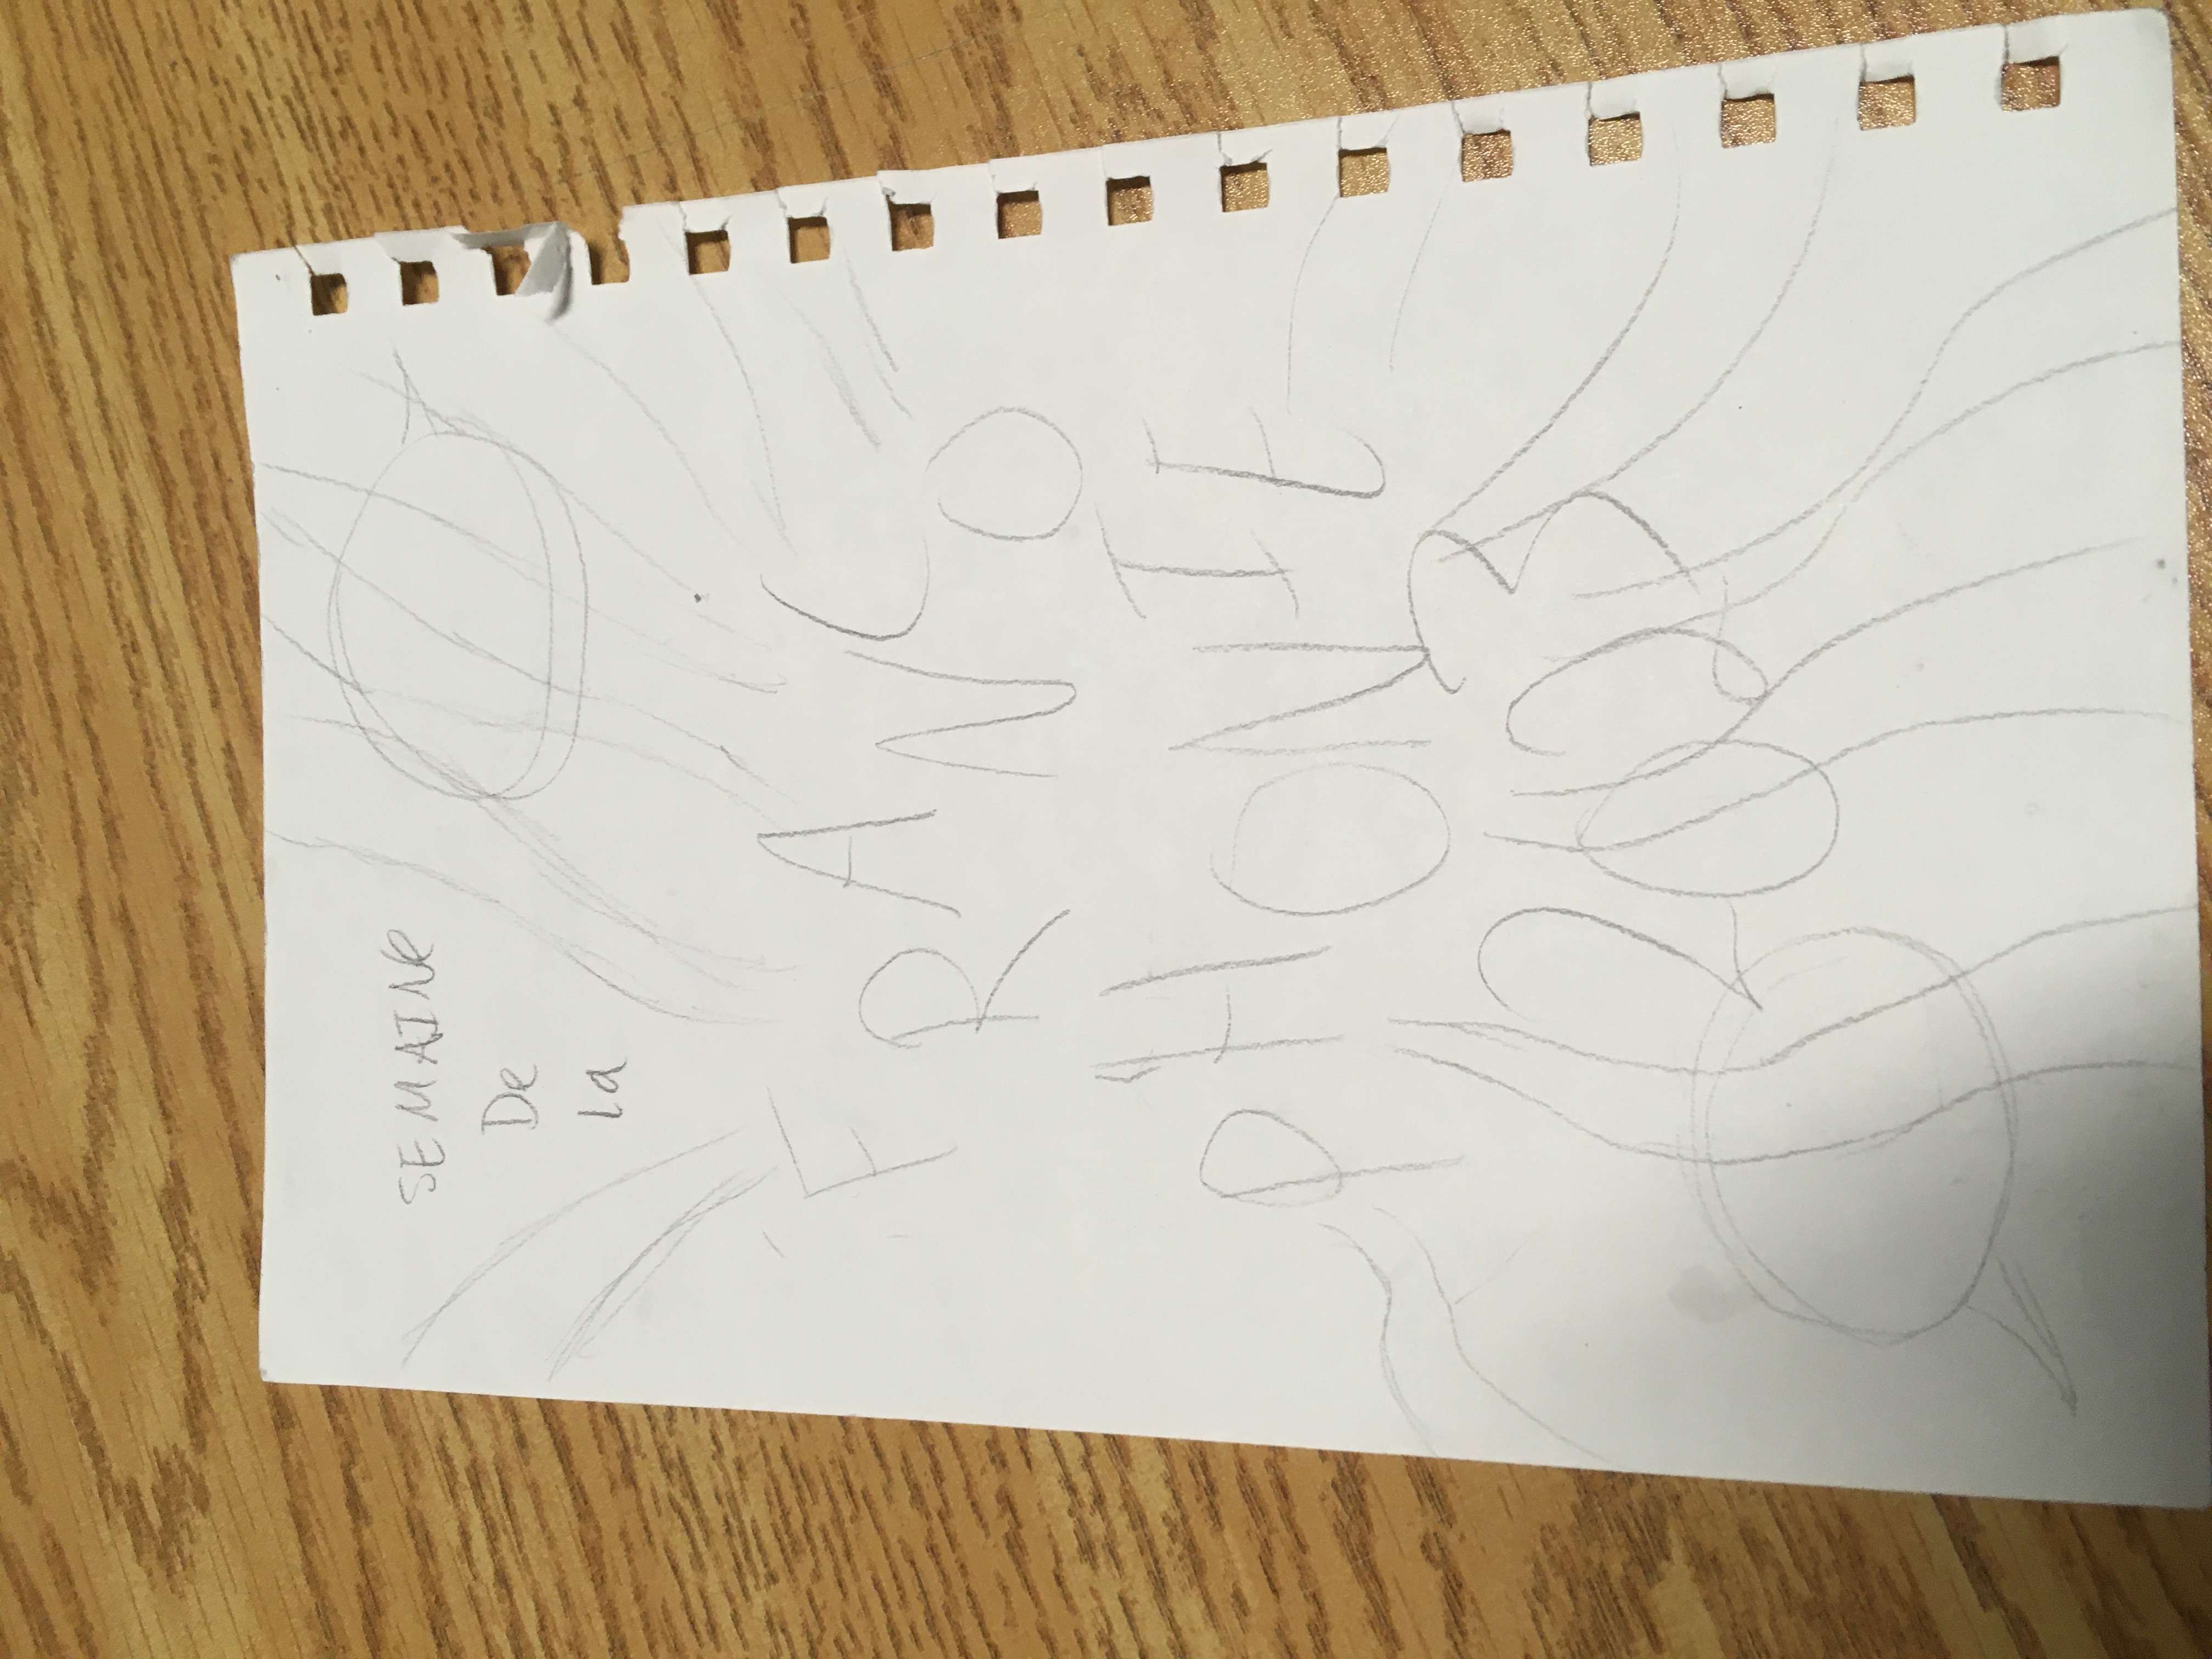 SEMAINe
De
la
FRANCO
PHONIE
2023